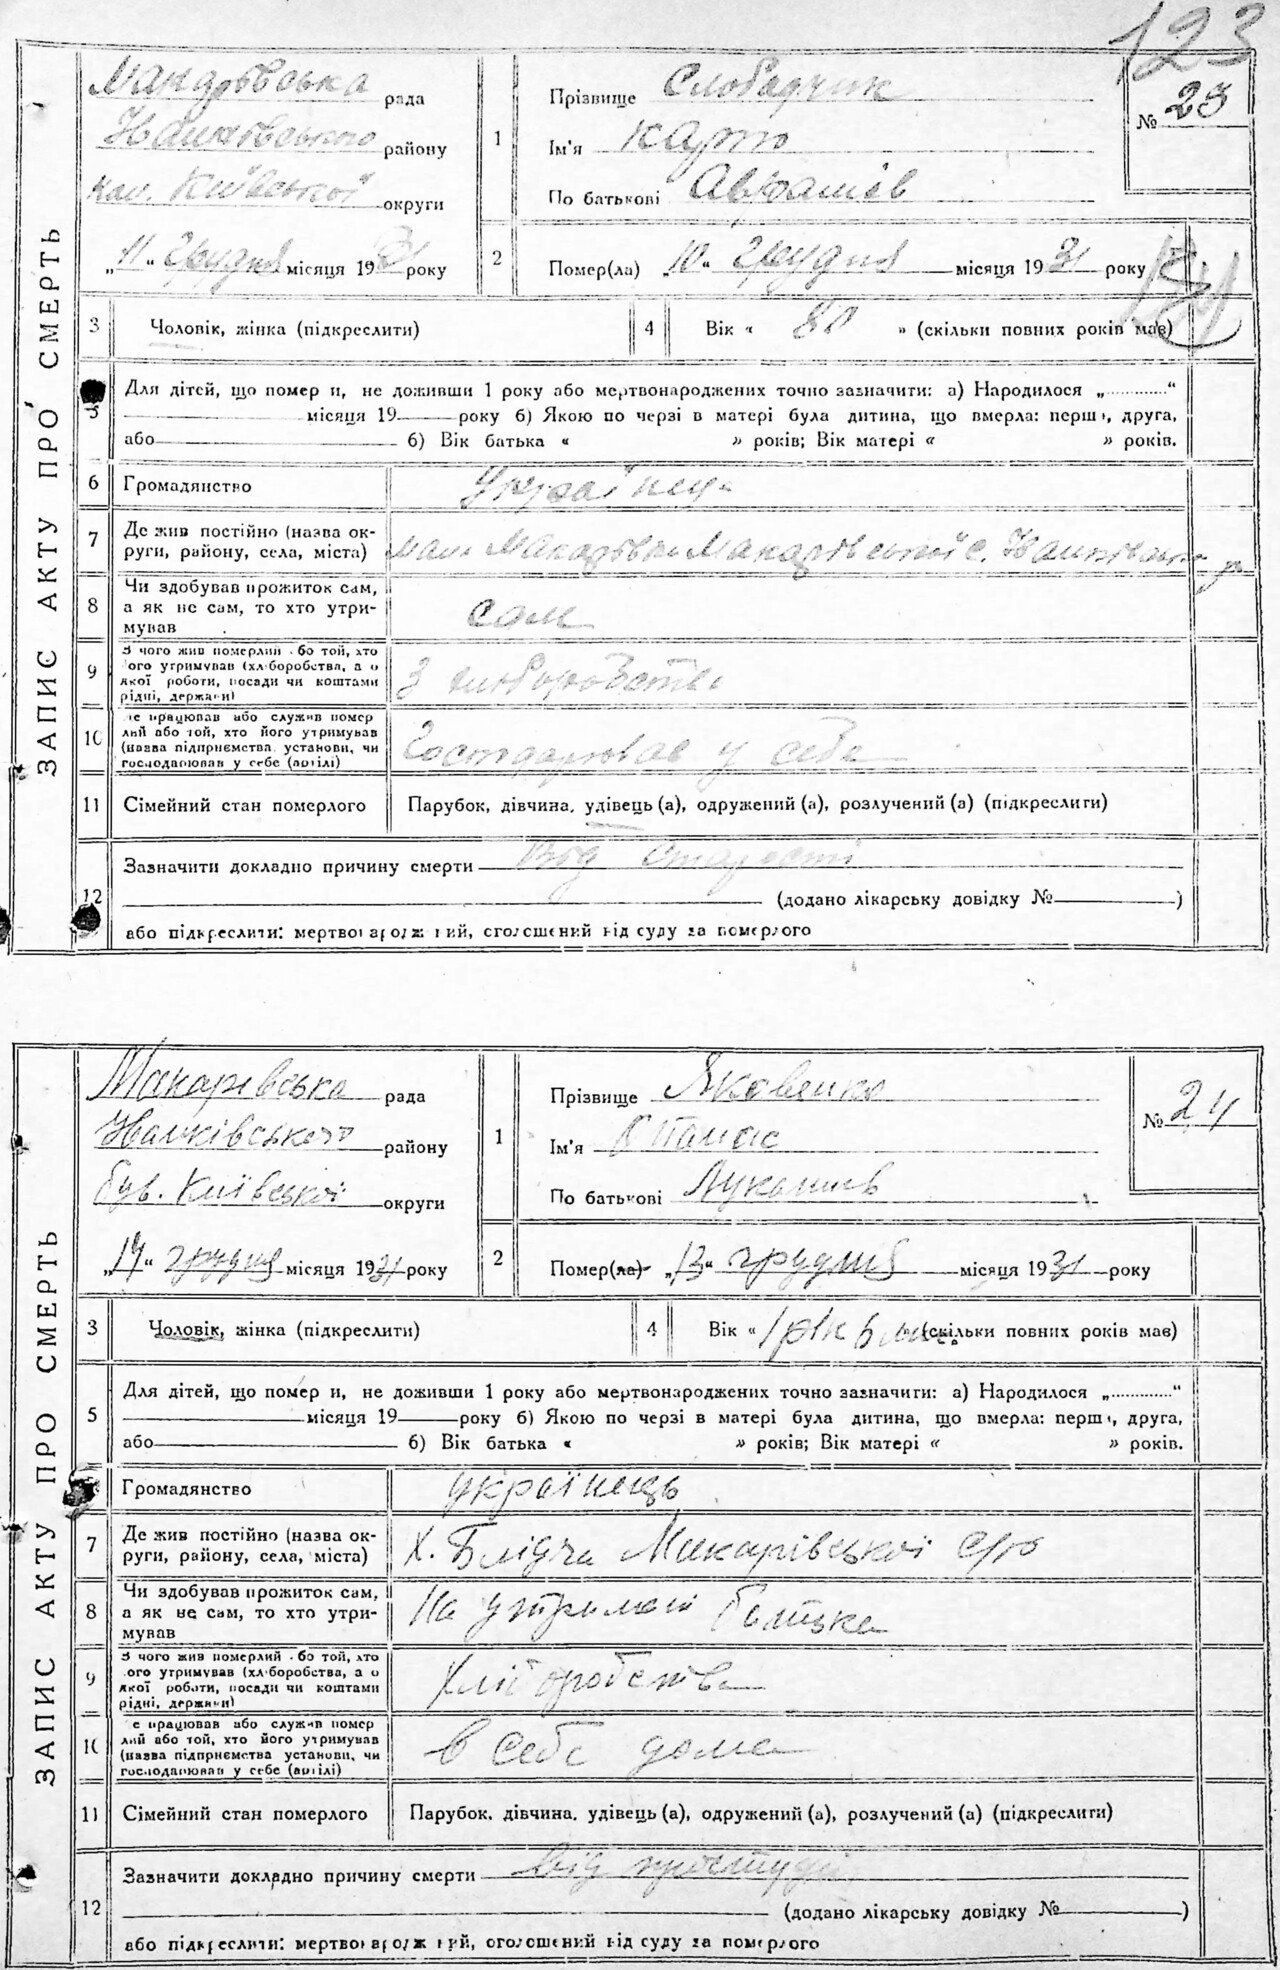 123
ЗАПИС АКТУ ПРО СМЕРТЬ
рада
району
Київської округи
„11“ грудня місяця 1931 року
1
Прізвище Слободчик
Ім'я
По батькові
№ 23
2
Помер(ла) „10“ грудня місяця 1931 року
3
Чоловік, жінка (підкреслити)
4
Вік « 80 » (скільки повних років мав)
5
Для дітей, що помер и, не доживши 1 року або мертвонароджених точно зазначити: а) Народилося „............“
місяця 19 року б) Якою по черзі в матері була дитина, що вмерла: перш , друга,
або б) Вік батька « » років; Вік матері « » років.
6
Громадянство Українець
7
Де жив постійно (назва ок-
руги, району, села, міста)
8
Чи здобував прожиток сам,
а як не сам, то хто утри-
мував
сам
9
З чого жив померлий бо той, хто
ого утримував (хл боробства, а о
якої роботи, посади чи коштами
рідні, держави)
З хлиборобства
10
е працював або служив помер
лий або той, хто його утримував
(назва підприємства установи, чи
господарював у себе (артілі)
Господарював у себе
11
Сімейний стан померлого
Парубок, дівчина, удівець (а), одружений (а), розлучений (а) (підкреслити)
12
Зазначити докладно причину смерти Від старості
(додано лікарську довідку № )
або підкреслити: мертвонародж ний, оголошений від суду за померлого
ЗАПИС АКТУ ПРО СМЕРТЬ
Макарівська рада
району
був. Київської округи
„14“ грудня місяця 1931 року
1
Прізвище Яковенко
Ім'я
По батькові
№ 24
2
Помер(ла) „13“ грудня місяця 1931 року
3
Чоловік, жінка (підкреслити)
4
Вік « 1 рік 6 міс. » (скільки повних років мав)
5
Для дітей, що помер и, не доживши 1 року або мертвонароджених точно зазначити: а) Народилося „............“
місяця 19 року б) Якою по черзі в матері була дитина, що вмерла: перш , друга,
або б) Вік батька « » років; Вік матері « » років.
Громадянство українець
7
Де жив постійно (назва ок-
руги, району, села, міста)
х. Блідча Макарівської с/р
8
Чи здобував прожиток сам,
а як не сам, то хто утри-
мував
На утримані батька
9
З чого жив померлий бо той, хто
ого утримував (хл боробства, а о
якої роботи, посади чи коштами
рідні, держави)
Хліборобства
10
е працював або служив помер
лий або той, хто його утримував
(назва підприємства установи, чи
господарював у себе (артілі)
в себе дома
11
Сімейний стан померлого
Парубок, дівчина, удівець (а), одружений (а), розлучений (а) (підкреслити)
12
Зазначити докладно причину смерти Від простуди
(додано лікарську довідку № )
або підкреслити: мертвонародж ний, оголошений від суду за померлого